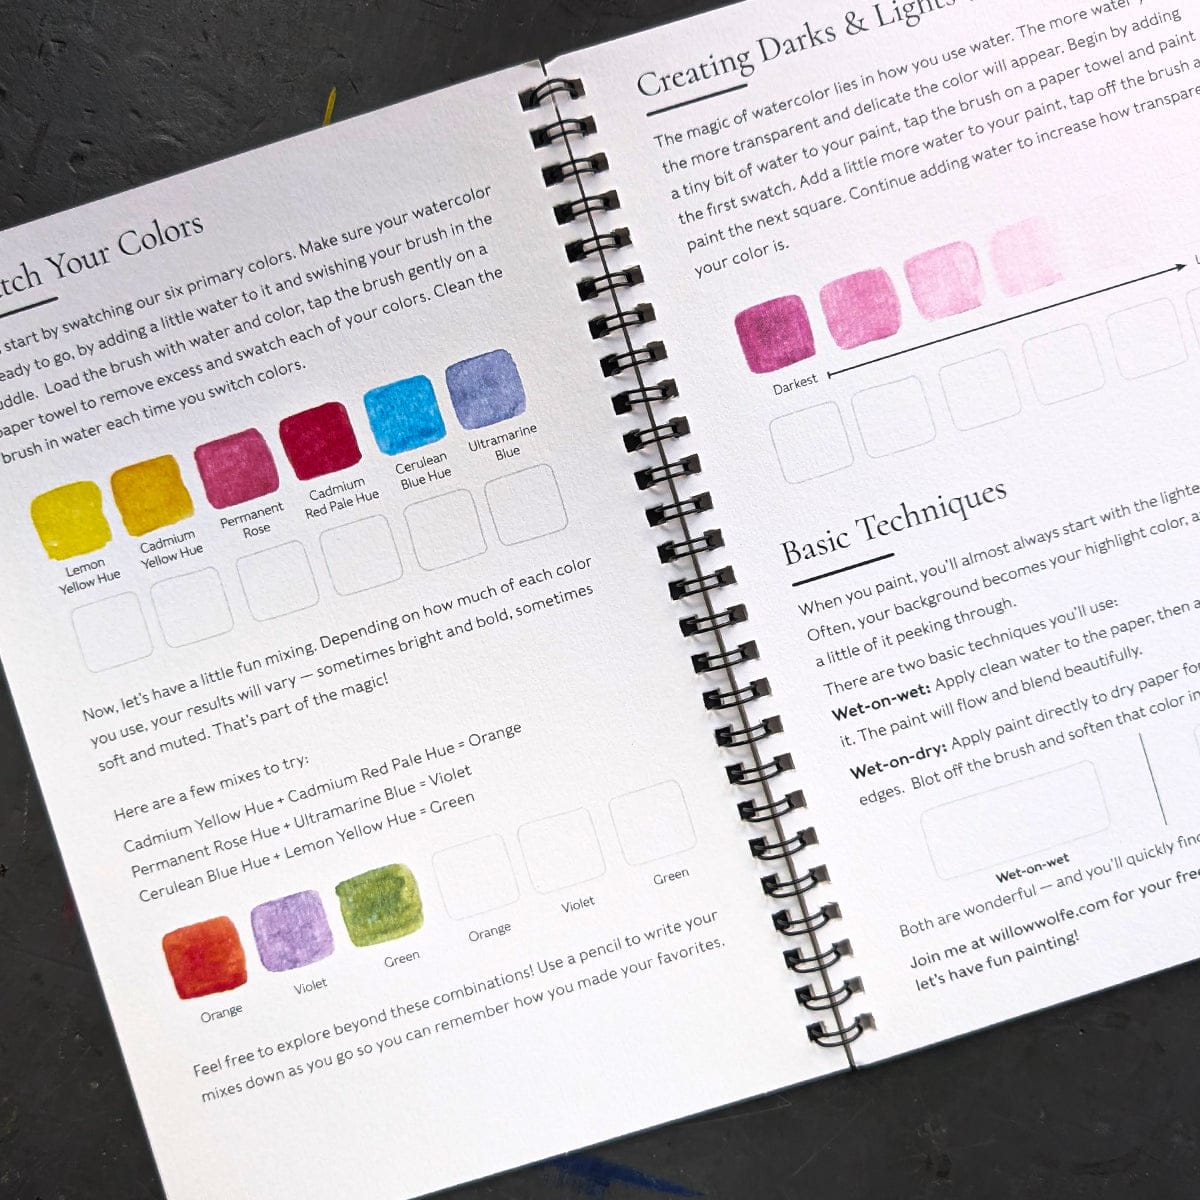 tch Your Colors
start by swatching our six primary colors. Make sure your watercolor
eady to go, by adding a little water to it and swishing your brush in the
uddle. Load the brush with water and color, tap the brush gently on a
paper towel to remove excess and swatch each of your colors. Clean the
brush in water each time you switch colors.
Lemon
Yellow Hue
Cadmium
Yellow Hue
Permanent
Rose
Cadmium
Red Pale Hue
Cerulean
Blue Hue
Ultramarine
Blue
Now, let's have a little fun mixing. Depending on how much of each color
you use, your results will vary — sometimes bright and bold, sometimes
soft and muted. That's part of the magic!
Here are a few mixes to try:
Cadmium Yellow Hue + Cadmium Red Pale Hue = Orange
Permanent Rose Hue + Ultramarine Blue = Violet
Cerulean Blue Hue + Lemon Yellow Hue = Green
Orange
Violet
Green
Orange
Violet
Green
Feel free to explore beyond these combinations! Use a pencil to write your
mixes down as you go so you can remember how you made your favorites.
Creating Darks & Lights
The magic of watercolor lies in how you use water. The more water
the more transparent and delicate the color will appear. Begin by adding
a tiny bit of water to your paint, tap the brush on a paper towel and paint
the first swatch. Add a little more water to your paint, tap off the brush a
paint the next square. Continue adding water to increase how transpare
your color is.
Darkest
Basic Techniques
When you paint, you'll almost always start with the lighte
Often, your background becomes your highlight color, a
a little of it peeking through.
There are two basic techniques you'll use:
Wet-on-wet: Apply clean water to the paper, then a
it. The paint will flow and blend beautifully.
Wet-on-dry: Apply paint directly to dry paper fo
edges. Blot off the brush and soften that color in
Wet-on-wet
Both are wonderful — and you'll quickly find
Join me at willowwolfe.com for your free
let's have fun painting!